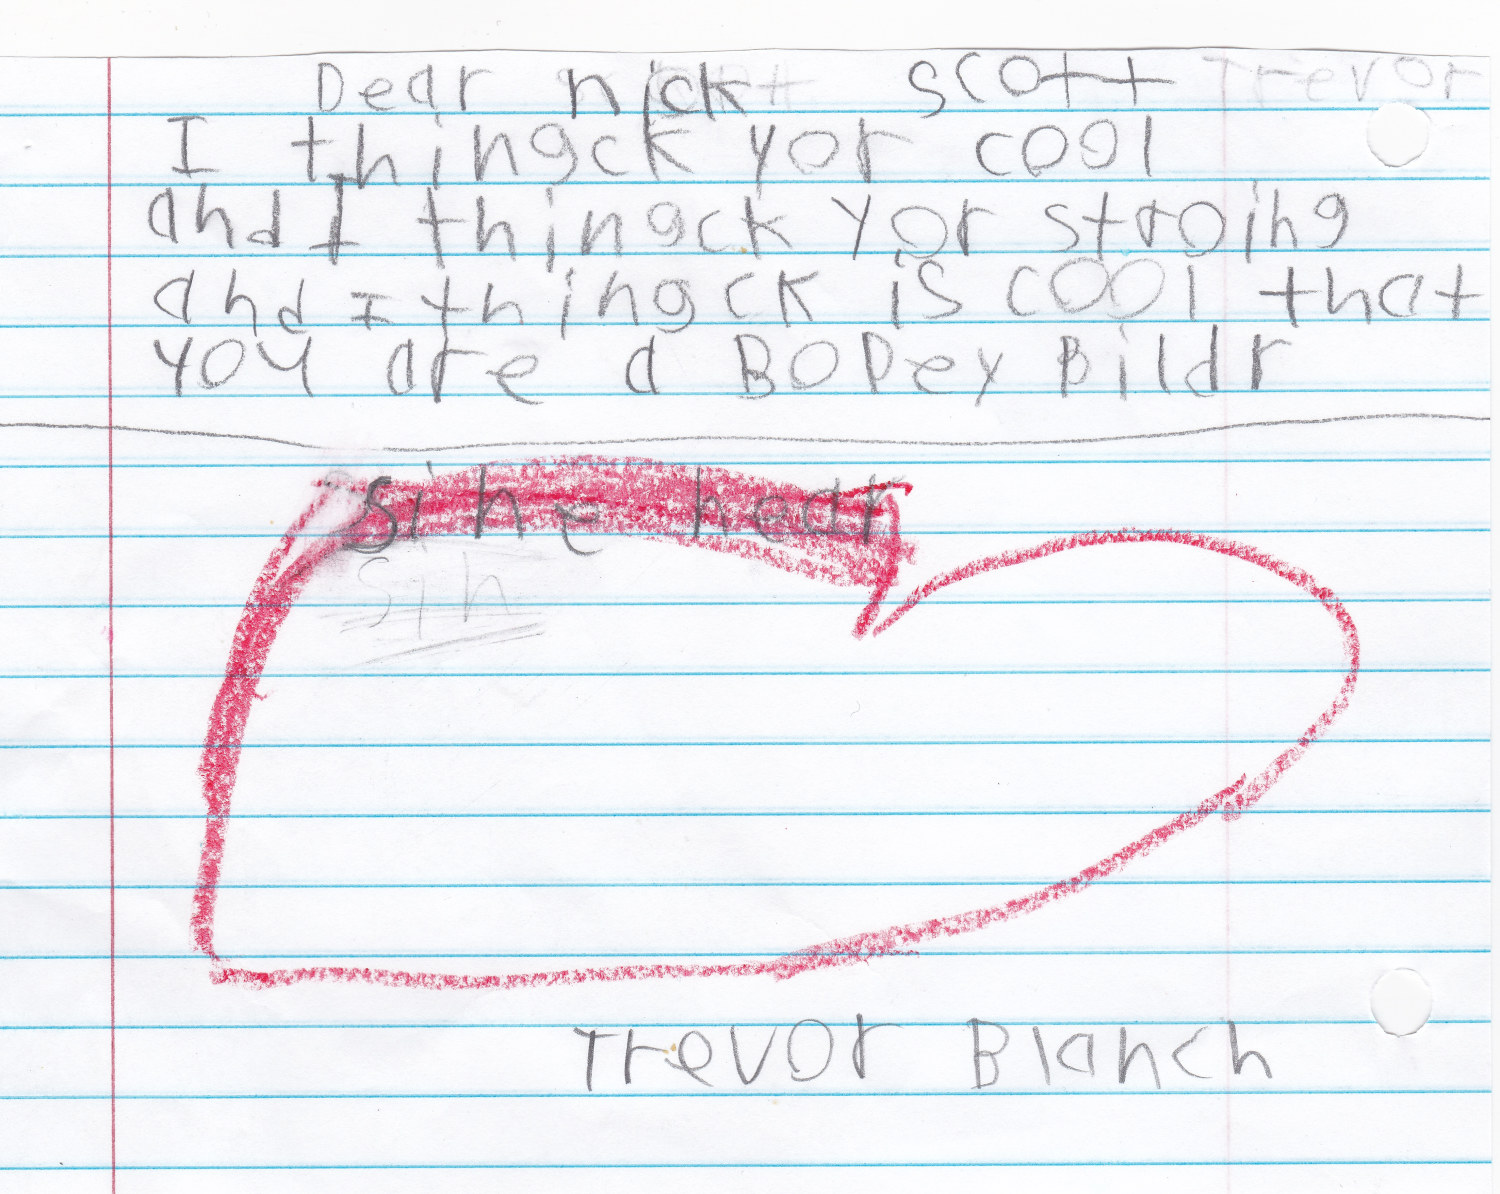 Dear nick scott Trevor
I thingck yor cool
and I thingck yor stroihg
and I thingck is cool that
you are a BODey Bildr
sihe hear
sih
Trevor Blanch